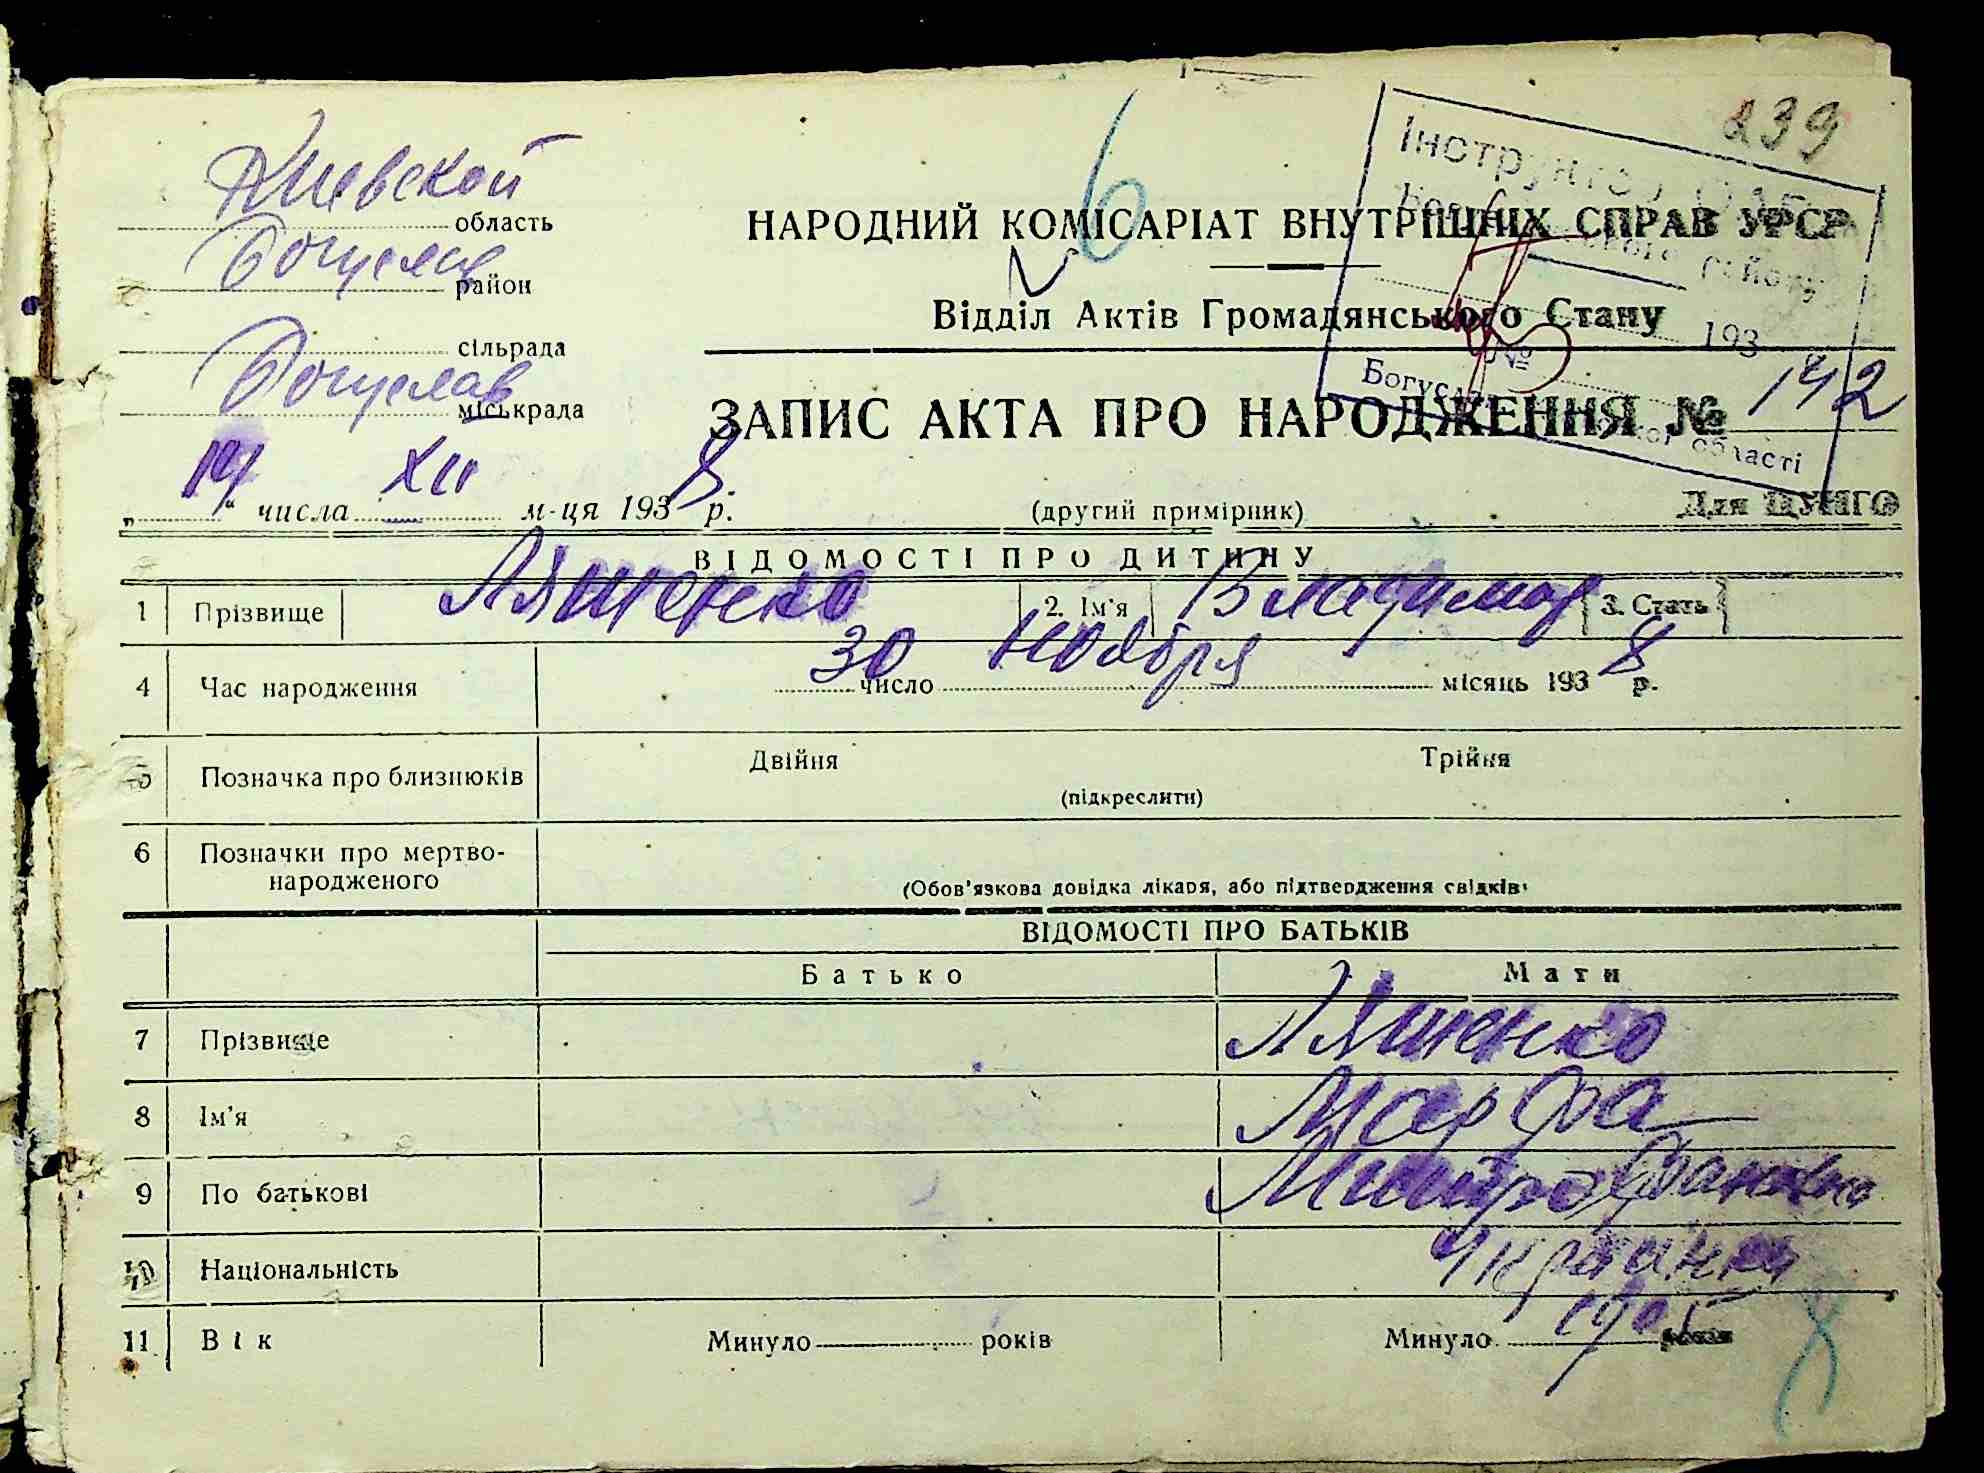 239
Киевской область
Богуслав район
сільрада
Богуслав міськрада
6
НАРОДНИЙ КОМІСАРІАТ ВНУТРІШНІХ СПРАВ УРСР
Відділ Актів Громадянського Стану
Інструктор
району
193
№
області
ЗАПИС АКТА ПРО НАРОДЖЕННЯ № 142
„19“ числа XII м-ця 1938 р.
(другий примірник)
Для ЦУНГО
ВІДОМОСТІ ПРО ДИТИНУ
1 Прізвище Ляшенко 2. Ім'я Владимир 3. Стать
4 Час народження 30 число ноября місяць 1938 р.
5 Позначка про близнюків Двійня Трійня
(підкреслити)
6 Позначки про мертво-
народженого
(Обов'язкова довідка лікаря, або підтвердження свідків)
ВІДОМОСТІ ПРО БАТЬКІВ
Батько Мати
7 Прізвище Ляшенко
8 Ім'я Марфа
9 По батькові Митрофановна
10 Національність Украинка
11 Вік Минуло років Минуло 1905 років